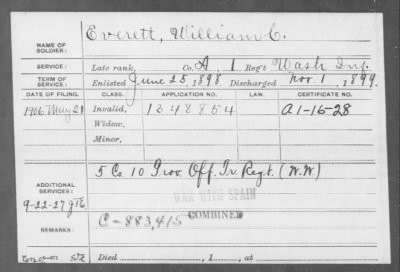 Everett, William C.
NAME OF SOLDIER:
SERVICE: Late rank, Co. A, 1 Reg't Wash Inf.
TERM OF SERVICE: Enlisted June 25, 1898 Discharged Nov. 1, 1899.
DATE OF FILING. CLASS. APPLICATION NO. LAW. CERTIFICATE NO.
1906 May 21 Invalid, 1348854 A1-16-28
Widow,
Minor,
5 Co 10 Prov. Off. Tr. Regt. (W.W)
ADDITIONAL SERVICES:
WAR WITH SPAIN
9-22-27
COMBINED
C-883,415
REMARKS:
Died , 1 , at